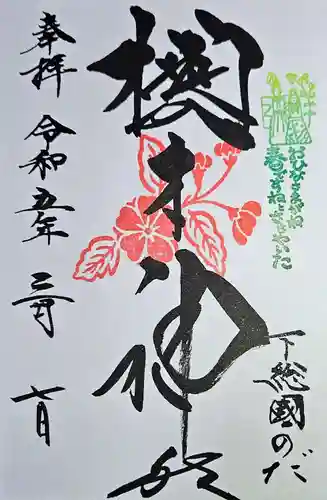 おひなさまがね
春ですねとささやいた
下総國のだ
櫻木神社
奉拝
令和五年
三月
七日